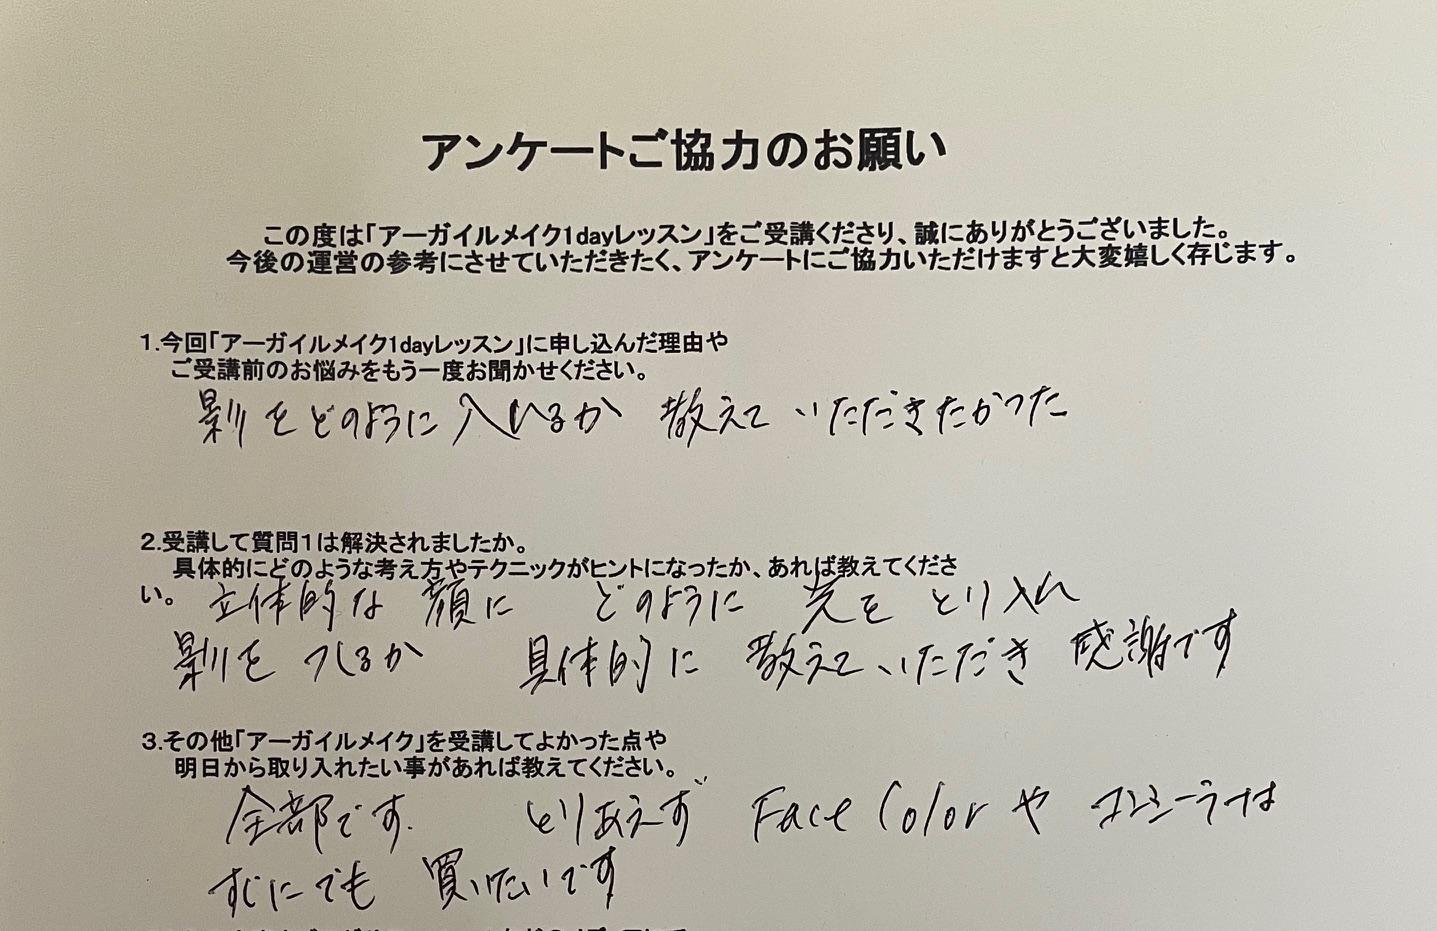 アンケートご協力のお願い
この度は｢アーガイルメイク1dayレッスン｣をご受講くださり、誠にありがとうございました。
今後の運営の参考にさせていただきたく、アンケートにご協力いただけますと大変嬉しく存じます。
1.今回｢アーガイルメイク1dayレッスン｣に申し込んだ理由や
ご受講前のお悩みをもう一度お聞かせください。
影をどのように入れるか 教えていただきたかった
2.受講して質問1は解決されましたか。
具体的にどのような考え方やテクニックがヒントになったか、あれば教えてくださ
い。 立体的な 顔に どのように 光を とり入れ
影を 入れるか 具体的に 教えていただき 感謝です
3.その他｢アーガイルメイク｣を受講してよかった点や
明日から取り入れたい事があれば教えてください。
全部です. とりあえず Face Colorや コンシーラーは
すぐにでも 買いたいです